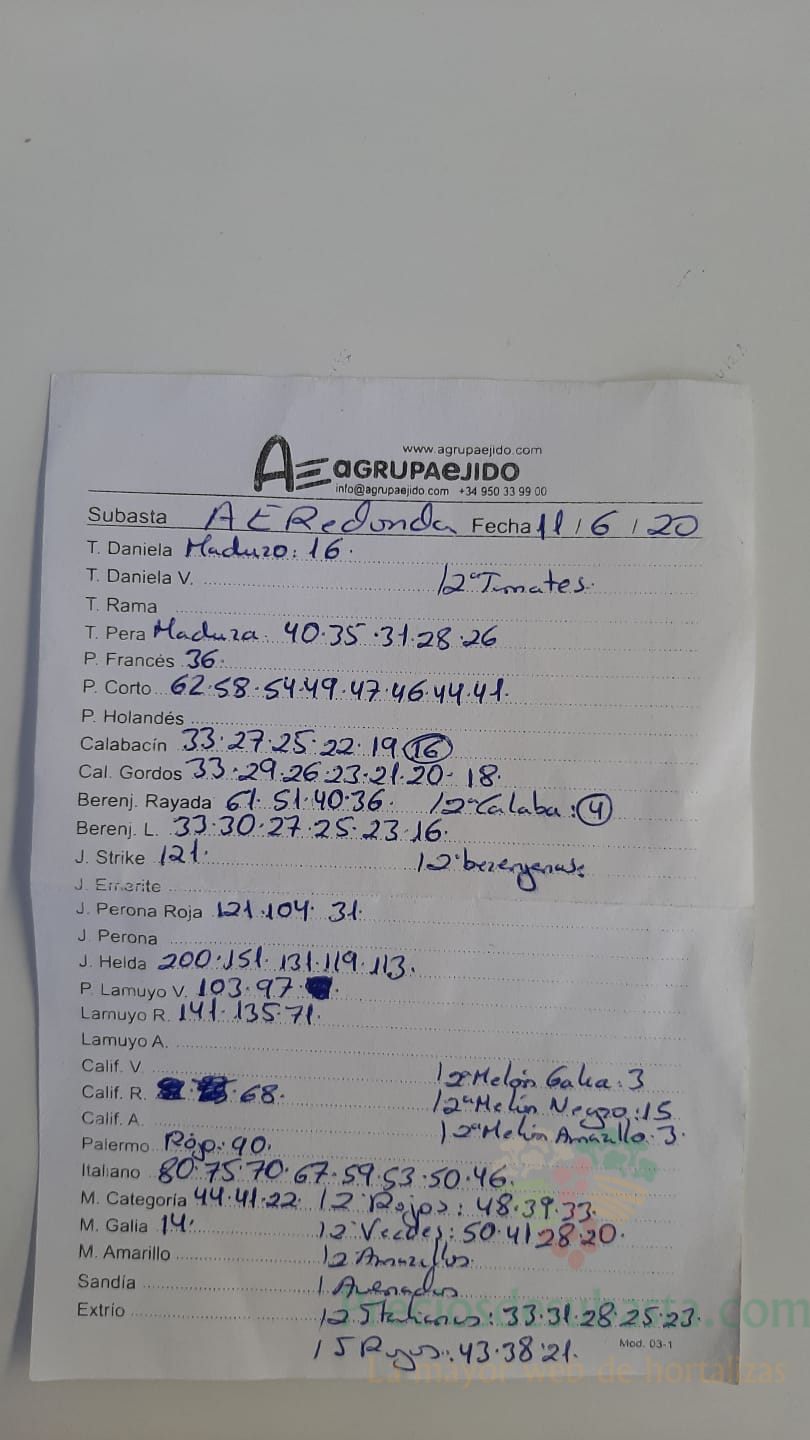 www.agrupaejido.com
AE aGRUPAeJIDO
info@agrupaejido.com +34 950 33 99 00
Subasta AERedonda Fecha 11 / 6 / 20
T. Daniela Maduro: 16.
T. Daniela V. /2ª Tomates.
T. Rama
T. Pera Madura: 40.35.31.28.26
P. Francés 36.
P. Corto 62.58.54.49.47.46.44.41.
P. Holandés
Calabacín 33.27.25.22.19 16
Cal. Gordos 33.29.26.23.21.20-18.
Berenj. Rayada 61.51.40.36. /2ª Calaba: 4
Berenj. L. 33.30.27.25.23.16.
J. Strike 121. /2ª berengenas:
J. Emerite
J. Perona Roja 121.104.31.
J. Perona
J. Helda 200.151.131.119.113.
P. Lamuyo V. 103.97.
Lamuyo R. 141.135.71.
Lamuyo A.
Calif. V. /2ª Melón Galia: 3
Calif. R. 68. /2ª Melón Negro: 15
Calif. A. /2ª Melón Amarillo. 3.
Palermo Rojo: 90.
Italiano 80.75.70.67.59.53.50.46.
M. Categoría 44.41.22. /2 Rojos: 48.39.33.
M. Galia 14. /2 Verdes: 50.41 28.20.
M. Amarillo /2 Amarillos
Sandía /
Extrío /2 Italianos: 33.31.28.25.23.
/5 Rojos: 43.38.21. Mod. 03-1
preciosdesubasta.com
La mayor web de hortalizas